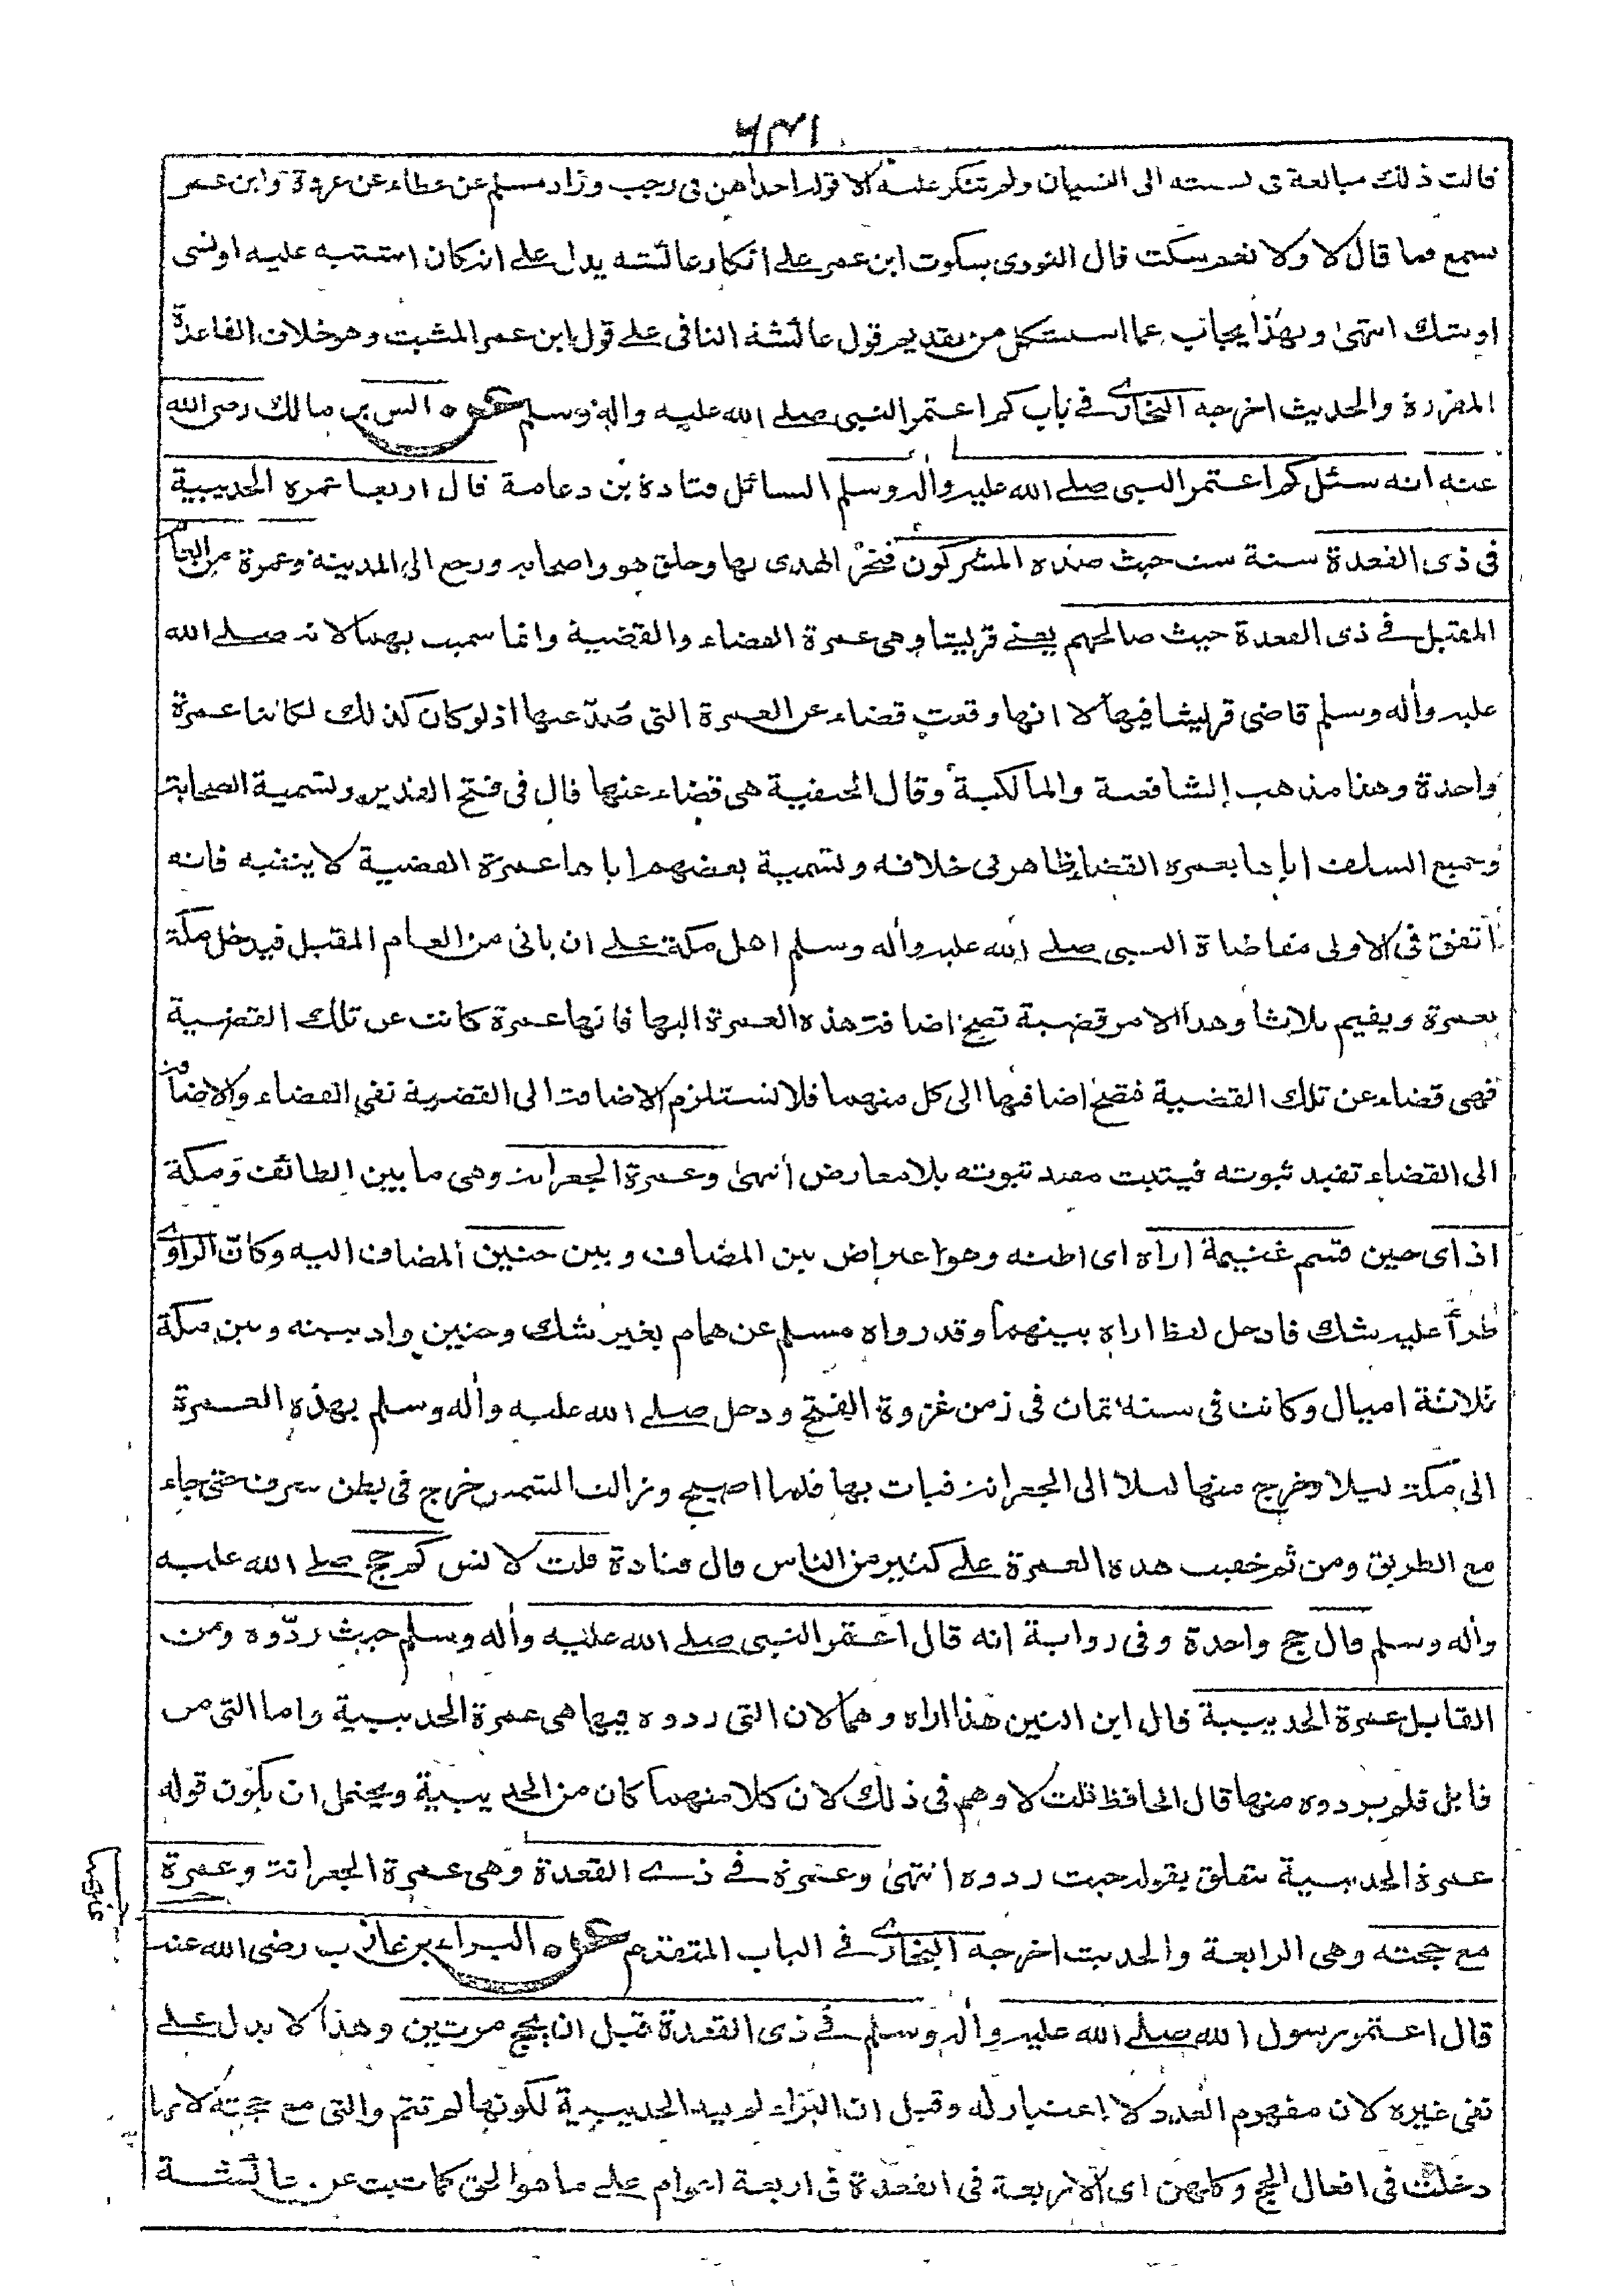 قالت ذلك مبالغة فى نسبته الى النسيان ولم تنكر عليه الا قوله احداهن فى رجب وزاد مسلم عن عطاء عن عروة وابن عمر
يسمع فما قال لا ولا نعم سكت قال النووى سكوت ابن عمر على انكار عائشة يدل على انه كان اشتبه عليه او نسى
او شك انتهى وبهذا يجاب عما استشكل من تقديم قول عائشة النافى على قول ابن عمر المثبت وهو خلاف القاعدة
المقررة والحديث اخرجه البخارى فى باب كم اعتمر النبى صلى الله عليه واله وسلم عن انس بن مالك رضى الله
عنه انه سئل كم اعتمر النبى صلى الله عليه واله وسلم السائل قتادة بن دعامة قال اربعا عمرة الحديبية
فى ذى القعدة سنة ست حيث صده المشركون فنحر الهدى بها وحلق هو واصحابه ورجع الى المدينة وعمرة من العام
المقبل فى ذى القعدة حيث صالحهم يعنى قريشا وهى عمرة القضاء والقضية وانما سميت بهما لانه صلى الله
عليه واله وسلم قاضى قريشا فيها لا انها وقعت قضاء عن العمرة التى صد عنها اذ لو كان كذلك لكانتا عمرة
واحدة وهذا مذهب الشافعية والمالكية وقال الحنفية هى قضاء عنها قال فى فتح القدير وتسمية الصحابة
وجميع السلف اياها بعمرة القضاء ظاهر فى خلافه وتسمية بعضهم اياها عمرة القضية لا ينفيه فانه
اتفق فى الاولى مقاضاة النبى صلى الله عليه واله وسلم اهل مكة على ان ياتى من العام المقبل فيدخل مكة
بعمرة ويقيم ثلاثا وهذا الامر قضية تصح اضافة هذه العمرة اليها فانها عمرة كانت عن تلك القضية
فهى قضاء عن تلك القضية فتصح اضافتها الى كل منهما فلا تستلزم الاضافة الى القضية نفى القضاء والاضافة
الى القضاء تفيد ثبوته فيثبت مفيد ثبوته بلا معارض انتهى وعمرة الجعرانة وهى ما بين الطائف ومكة
اذ اى حين قسم غنيمة اراه اى اظنه وهو اعتراض بين المضاف وبين حنين المضاف اليه وكان الراوى
طرأ عليه شك فادخل لفظ اراه بينهما وقد رواه مسلم عن همام بغير شك وحنين واد بينه وبين مكة
ثلاثة اميال وكانت فى سنة ثمان فى زمن غزوة الفتح ودخل صلى الله عليه واله وسلم بهذه العمرة
الى مكة ليلا وخرج منها ليلا الى الجعرانة فبات بها فلما اصبح وزالت الشمس خرج فى بطن سرف حتى جاء
مع الطريق ومن ثم خفيت هذه العمرة على كثير من الناس قال قتادة قلت لانس كم حج صلى الله عليه
واله وسلم قال حج واحدة وفى رواية انه قال اعتمر النبى صلى الله عليه واله وسلم حيث ردّوه ومن
القابل عمرة الحديبية قال ابن التين هذا اراه وهما لان التى ردوه فيها هى عمرة الحديبية واما التى من
قابل فلم يردوه منها قال الحافظ قلت لا وهم فى ذلك لان كلا منهما كان من الحديبية ويحتمل ان يكون قوله
عمرة الحديبية يتعلق بقوله حيث ردوه انتهى وعمرة فى ذى القعدة وهى عمرة الجعرانة وعمرة
مع حجته وهى الرابعة والحديث اخرجه البخارى فى الباب المتقدم عن البراء بن عازب رضى الله عنه
قال اعتمر رسول الله صلى الله عليه واله وسلم فى ذى القعدة قبل ان يحج مرتين وهذا لا يدل على
نفى غيره لان مفهوم العدد لا اعتبار له وقيل ان البراء لم يعد الحديبية لكونها لم تتم والتى مع حجته لانها
دخلت فى افعال الحج وكلهن اى الاربعة فى القعدة فى اربعة اعوام على ما هو الحق كما ثبت عن عائشة